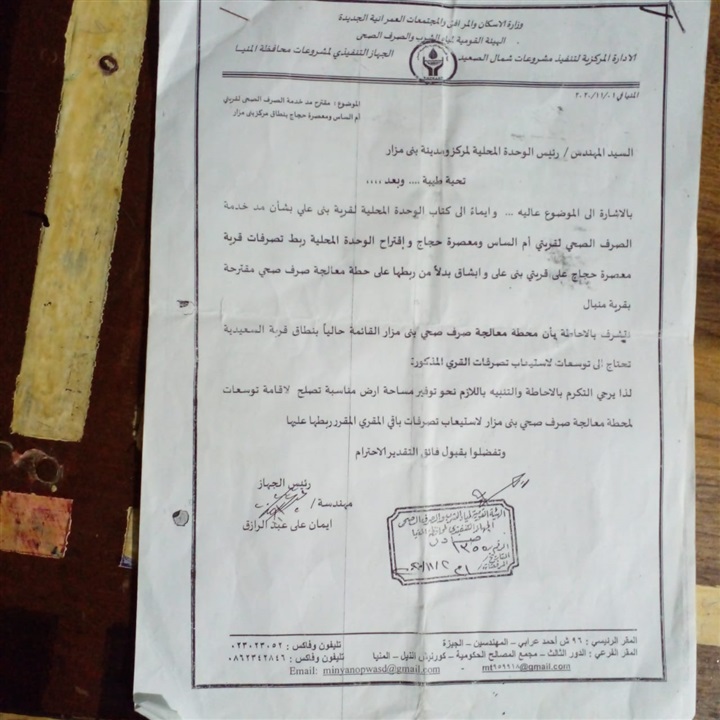 وزارة الاسكان والمرافق والمجتمعات العمرانية الجديدة
الهيئة القومية لمياه الشرب والصرف الصحى
الادارة المركزية لتنفيذ مشروعات شمال الصعيد
الجهاز التنفيذي لمشروعات محافظة المنيا
المنيا في ٢٠٢٠/١١/٠١
الموضوع : مقترح مد خدمة الصرف الصحى لقريتي
أم الساس ومعصرة حجاج بنطاق مركز بنى مزار
السيد المهندس / رئيس الوحدة المحلية لمركز ومدينة بنى مزار
تحية طيبة .... وبعد ،،،،
بالاشارة الى الموضوع عاليه ... وايماءً الى كتاب الوحدة المحلية لقرية بنى علي بشأن مد خدمة
الصرف الصحي لقريتي أم الساس ومعصرة حجاج وإقتراح الوحدة المحلية ربط تصرفات قرية
معصرة حجاج على قريتي بنى على وابشاق بدلاً من ربطها على حطة معالجة صرف صحي مقترحة
بقرية منبال
نتشرف بالاحاطة بأن محطة معالجة صرف صحي بنى مزار القائمة حالياً بنطاق قرية السعيدية
تحتاج الى توسعات لاستيعاب تصرفات القري المذكورة
لذا يرجي التكرم بالاحاطة والتنبيه باللازم نحو توفير مساحة ارض مناسبة تصلح لاقامة توسعات
لمحطة معالجة صرف صحي بنى مزار لاستيعاب تصرفات باقي المقري المقرر ربطها عليها
وتفضلوا بقبول فائق التقدير الاحترام
رئيس الجهاز
مهندسة /
ايمان على عبد الرازق
الهيئة القومية لمياه الشرب والصرف الصحى
الجهاز التنفيذى لمحافظة المنيا
صادر
المقر الرئيسي : ٩٦ ش أحمد عرابي – المهندسين – الجيزة
تليفون وفاكس : ٠٢٣٠٢٣٠٥٢
المقر الفرعي : الدور الثالث – مجمع المصالح الحكومية – كورنيش النيل – المنيا
تليفون وفاكس : ٠٨٦٢٣٤٢٨٤٦
Email: minyanopwasd@gmail.com - mt٩٥٩٩١٨@gmail.com